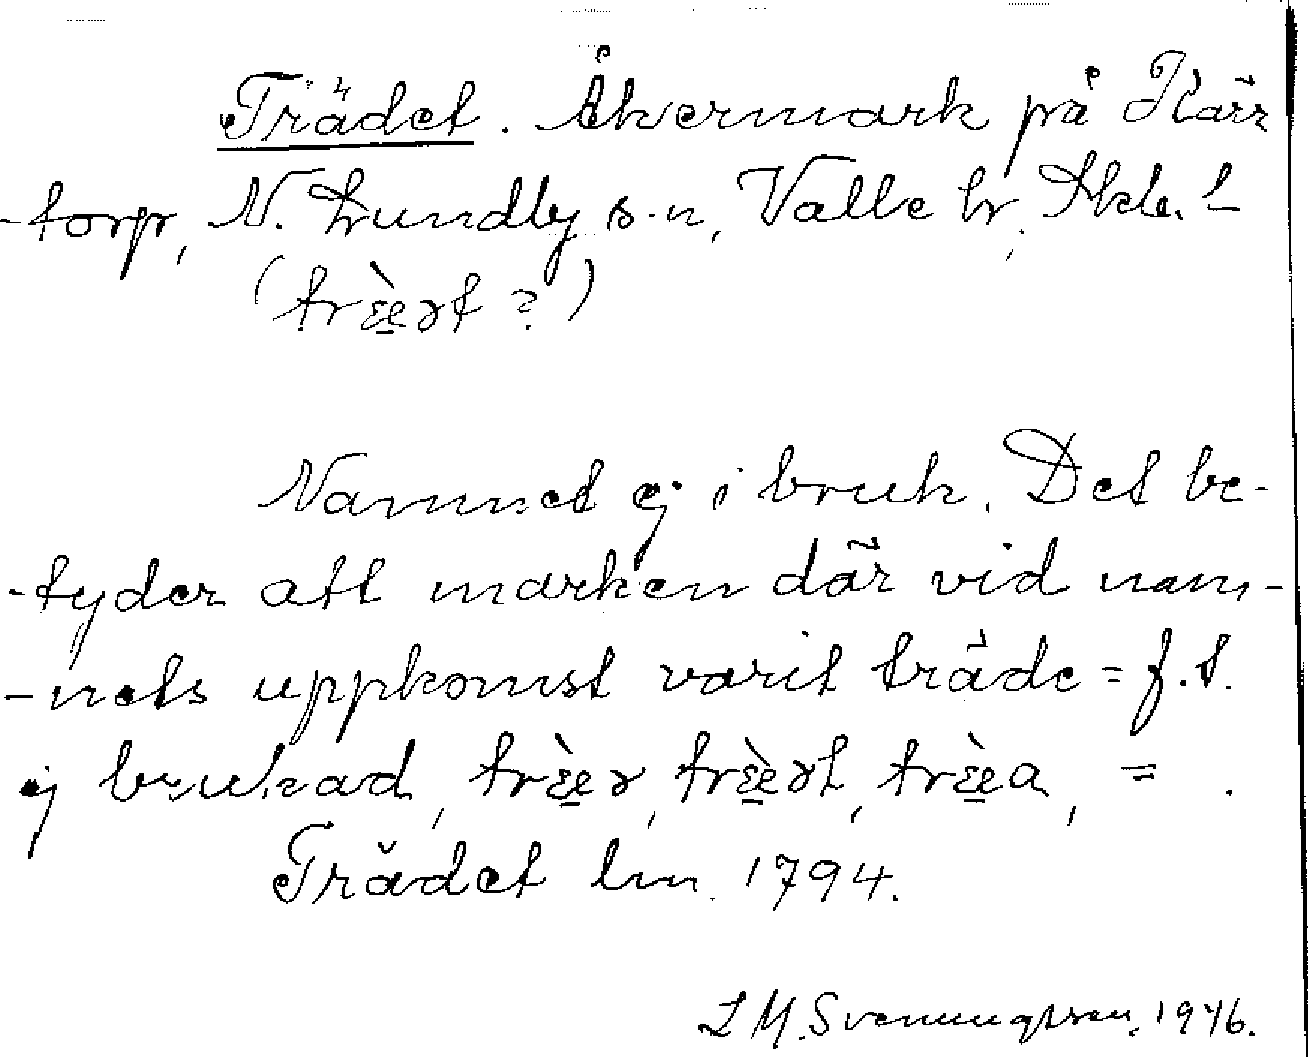 Trädet. Åkermark på Kärr
-torp, N. Lundby s-n, Valle hr, Skbl. l-
(træ̀ət ?)
Namnet ej i bruk. Det be-
-tyder att marken där vid nam-
-nets uppkomst varit träde = f.t.
ej brukad, trɛ̀ə, trɛ̀ət, trɛ̀a, = .
Trädet lm. 1794.
L M. Svenungsson. 1946.